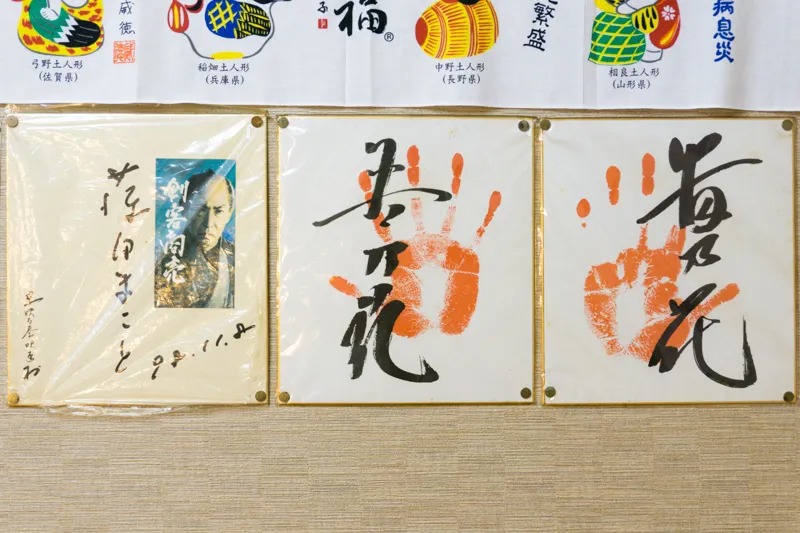 威徳
弓野土人形
(佐賀県)
稲畑土人形
(兵庫県)
福®
中野土人形
(長野県)
繁盛
相良土人形
(山形県)
病息災
剣客商売
藤田まこと
98.11.8
若乃花
貴乃花